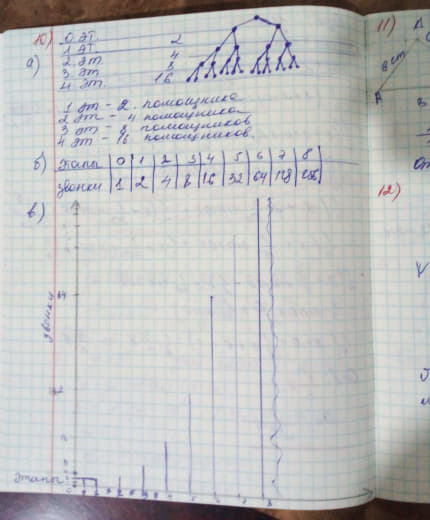 10) 0. эт.
1. эт. 2
а) 2. эт. 4
3. эт. 8
4. эт. 16
1 эт - 2. помощника
2 эт - 4 помощника
3 эт - 8 помощников
4 эт - 16 помощников.
б) этапы 0 1 2 3 4 5 6 7 8
звонки 1 2 4 8 16 32 64 128 256
в)
звонки
этапы
11)
А
8 см
А
3
12)